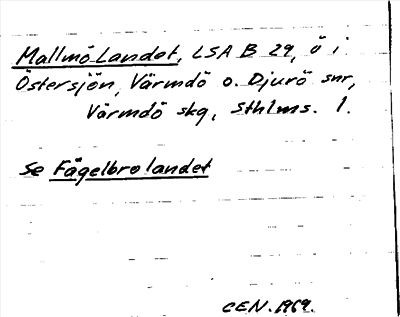 Mallmö Landet, LSA B 29, ö i
Östersjön, Värmdö o. Djurö snr,
Värmdö skg, Sthlms. l.
Se Fågelbrolandet
CEN. 1969.